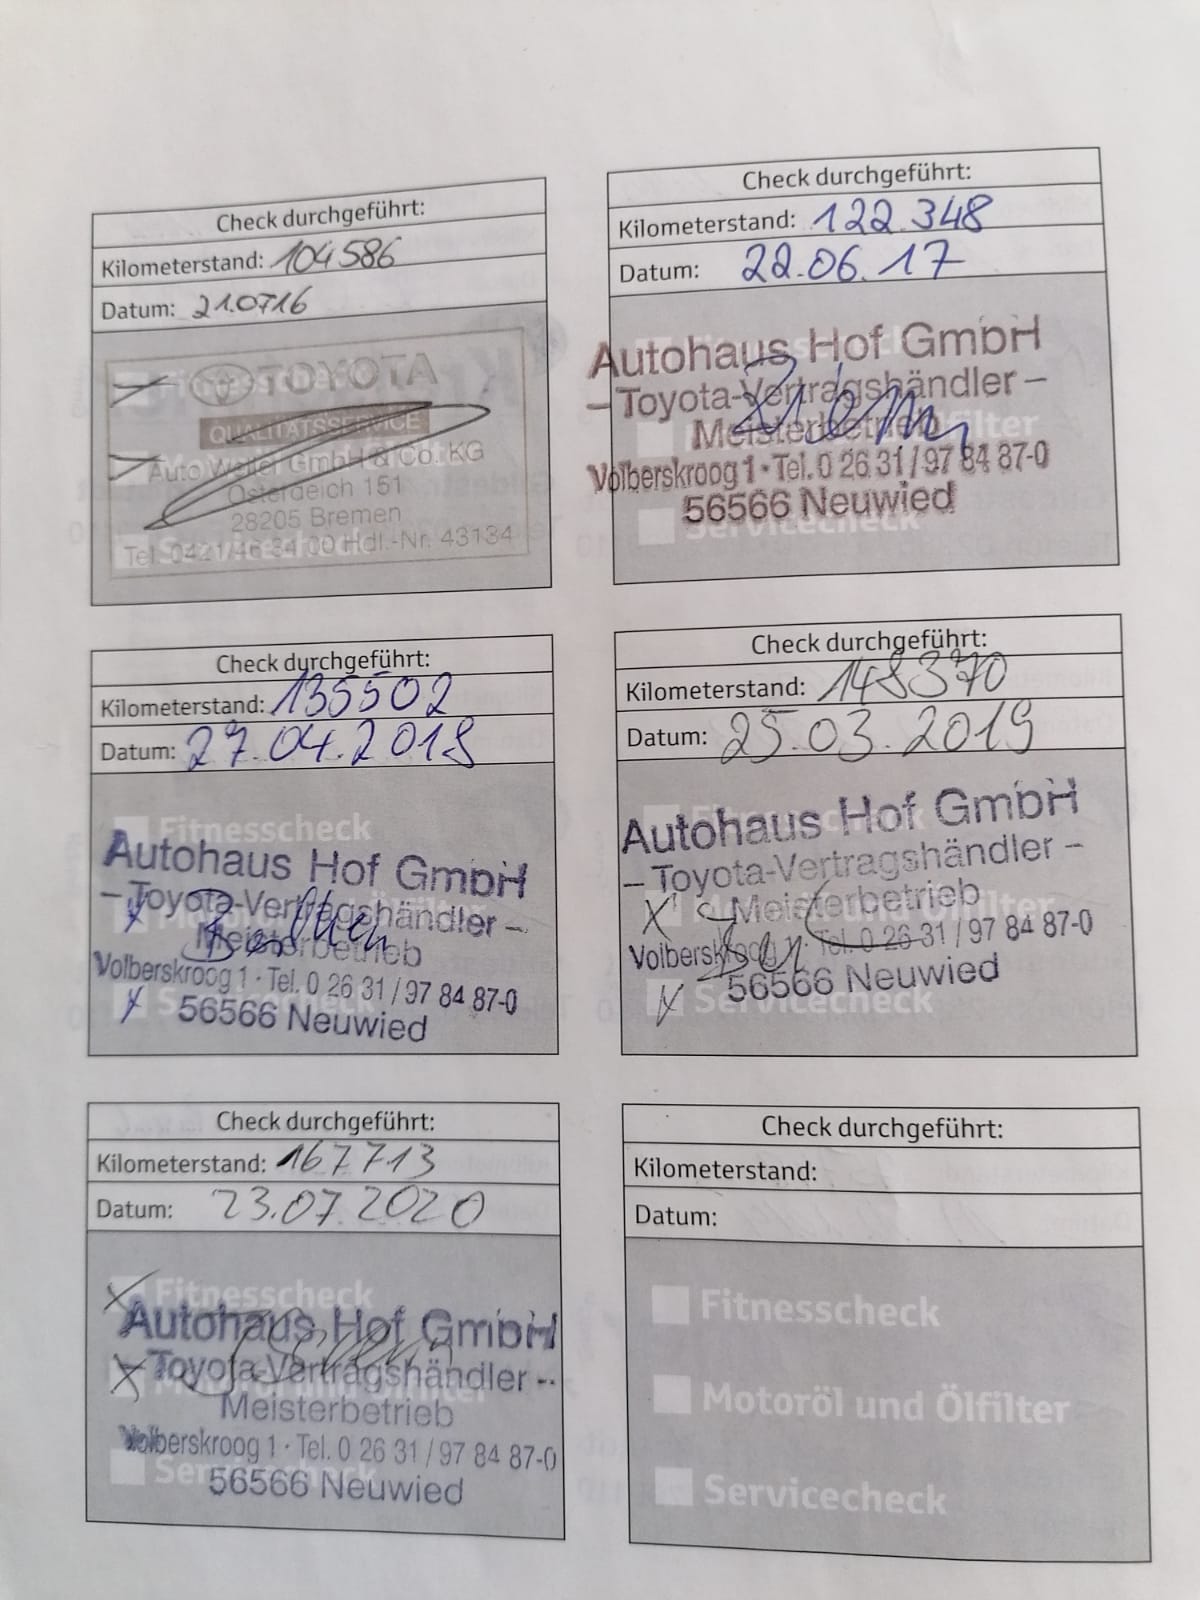 Check durchgeführt:
Kilometerstand: 104586
Datum: 21.0716
Fitnesscheck
TOYOTA
QUALITÄTSSERVICE
Auto Weller GmbH & Co. KG
Osterdeich 151
28205 Bremen
Tel. 0421/46 34 00 Hdl.-Nr. 43134
Check durchgeführt:
Kilometerstand: 122.348
Datum: 22.06.17
Autohaus Hof GmbH
– Toyota-Vertragshändler –
Meisterbetrieb
Volberskroog 1 · Tel. 0 26 31 / 97 84 87-0
56566 Neuwied
Servicecheck
Check durchgeführt:
Kilometerstand: 135502
Datum: 27.04.2018
Fitnesscheck
Autohaus Hof GmbH
– Toyota-Vertragshändler –
Meisterbetrieb
Volberskroog 1 · Tel. 0 26 31 / 97 84 87-0
56566 Neuwied
Check durchgeführt:
Kilometerstand: 148370
Datum: 25.03.2019
Autohaus Hof GmbH
– Toyota-Vertragshändler –
X Meisterbetrieb
Volberskroog 1 · Tel. 0 26 31 / 97 84 87-0
56566 Neuwied
X Servicecheck
Check durchgeführt:
Kilometerstand: 167713
Datum: 23.07.2020
X Fitnesscheck
Autohaus Hof GmbH
X Toyota-Vertragshändler --
Meisterbetrieb
Volberskroog 1 · Tel. 0 26 31 / 97 84 87-0
56566 Neuwied
Check durchgeführt:
Kilometerstand:
Datum:
Fitnesscheck
Motoröl und Ölfilter
Servicecheck